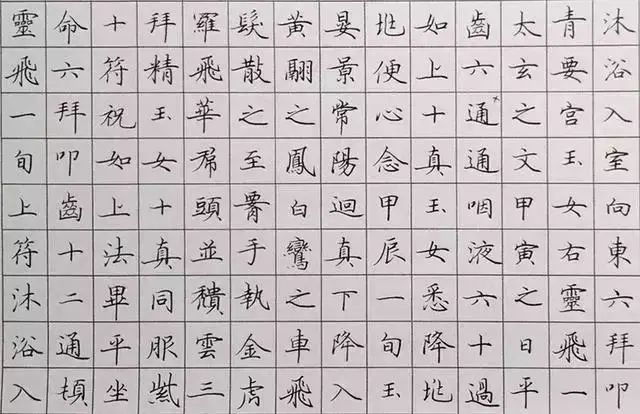 沐浴入室向東六拜叩
青要宮玉女右靈飛一
太玄之文甲寅之日平
齒六通通咽液六十過
如上十真玉女悉降地
地便心念甲辰一旬玉
晏景常陽迴真下降入
黃翮之鳳白鸞之車飛
髮散之至手執金虎
羅飛華帬頭並穨雲三
拜精玉女十真同服紫
十符祝如上法畢平坐
命六拜叩齒十二通頓
靈飛一旬上符沐浴入